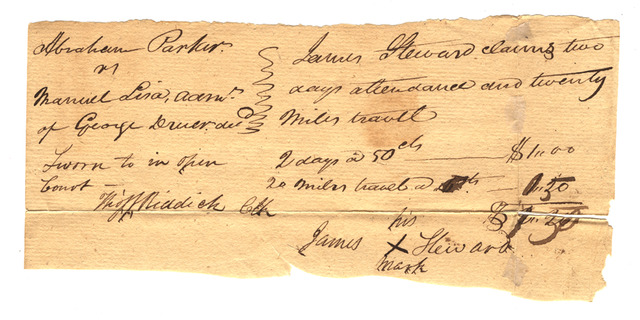 Abraham Parker
vs
Manuel Lisa, admr.
of George Druer. decd
James Steward claims two
days attendance and twenty
Miles travel
Sworn to in open
Court —
Thos F Riddick Clk
2 days @ 50 cts — $1.00
20 Miles travel @ — 0.50
$1.50
his
James X Steward
mark